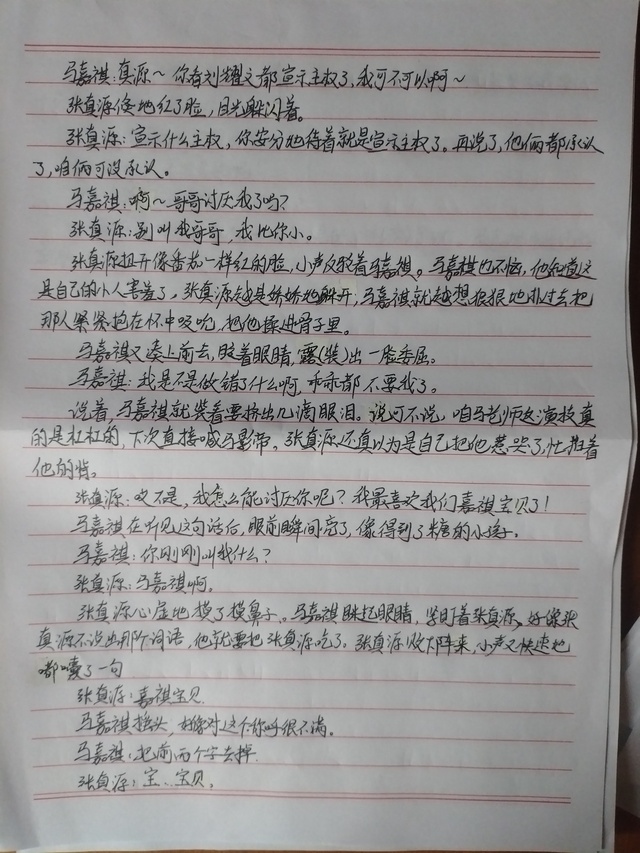 马嘉祺:真源～你看刘耀文都宣示主权了,我可不可以啊～
张真源倏地红了脸,目光躲闪着。
张真源:宣示什么主权,你安分地待着就是宣示主权了。再说了,他俩都承认
了,咱俩可没承认。
马嘉祺:啊～哥哥讨厌我了吗?
张真源:别叫我哥哥,我比你小。
张真源扭开像番茄一样红的脸,小声反驳着马嘉祺。马嘉祺也不恼,他知道这
是自己的小人害羞了,张真源越是娇娇地躲开,马嘉祺就越想狠狠地扑过去把
那人紧紧抱在怀中吸吮,把他揉进骨子里。
马嘉祺又凑上前去,眨着眼睛,露(装)出一脸委屈。
马嘉祺:我是不是做错了什么啊,乖乖都不要我了。
说着,马嘉祺就装着要挤出几滴眼泪。说可不说,咱马老师这演技真
的是杠杠的,下次直接喊马影帝。张真源还真以为是自己把他惹哭了,忙拍着
他的背。
张真源:哎不是,我怎么能讨厌你呢?我最喜欢我们嘉祺宝贝了!
马嘉祺在听见这句话后,眼前瞬间亮了,像得到了糖的小孩子。
马嘉祺:你刚刚叫我什么?
张真源:马嘉祺啊。
张真源心虚地摸了摸鼻子。马嘉祺眯起眼睛,紧盯着张真源,好像张
真源不说出那个词语,他就要把张真源吃了。张真源败下阵来,小声又快速地
嘟囔了一句
张真源:嘉祺宝贝.
马嘉祺摇头,好像对这个称呼很不满。
马嘉祺:把前两个字去掉.
张真源:宝、宝贝,